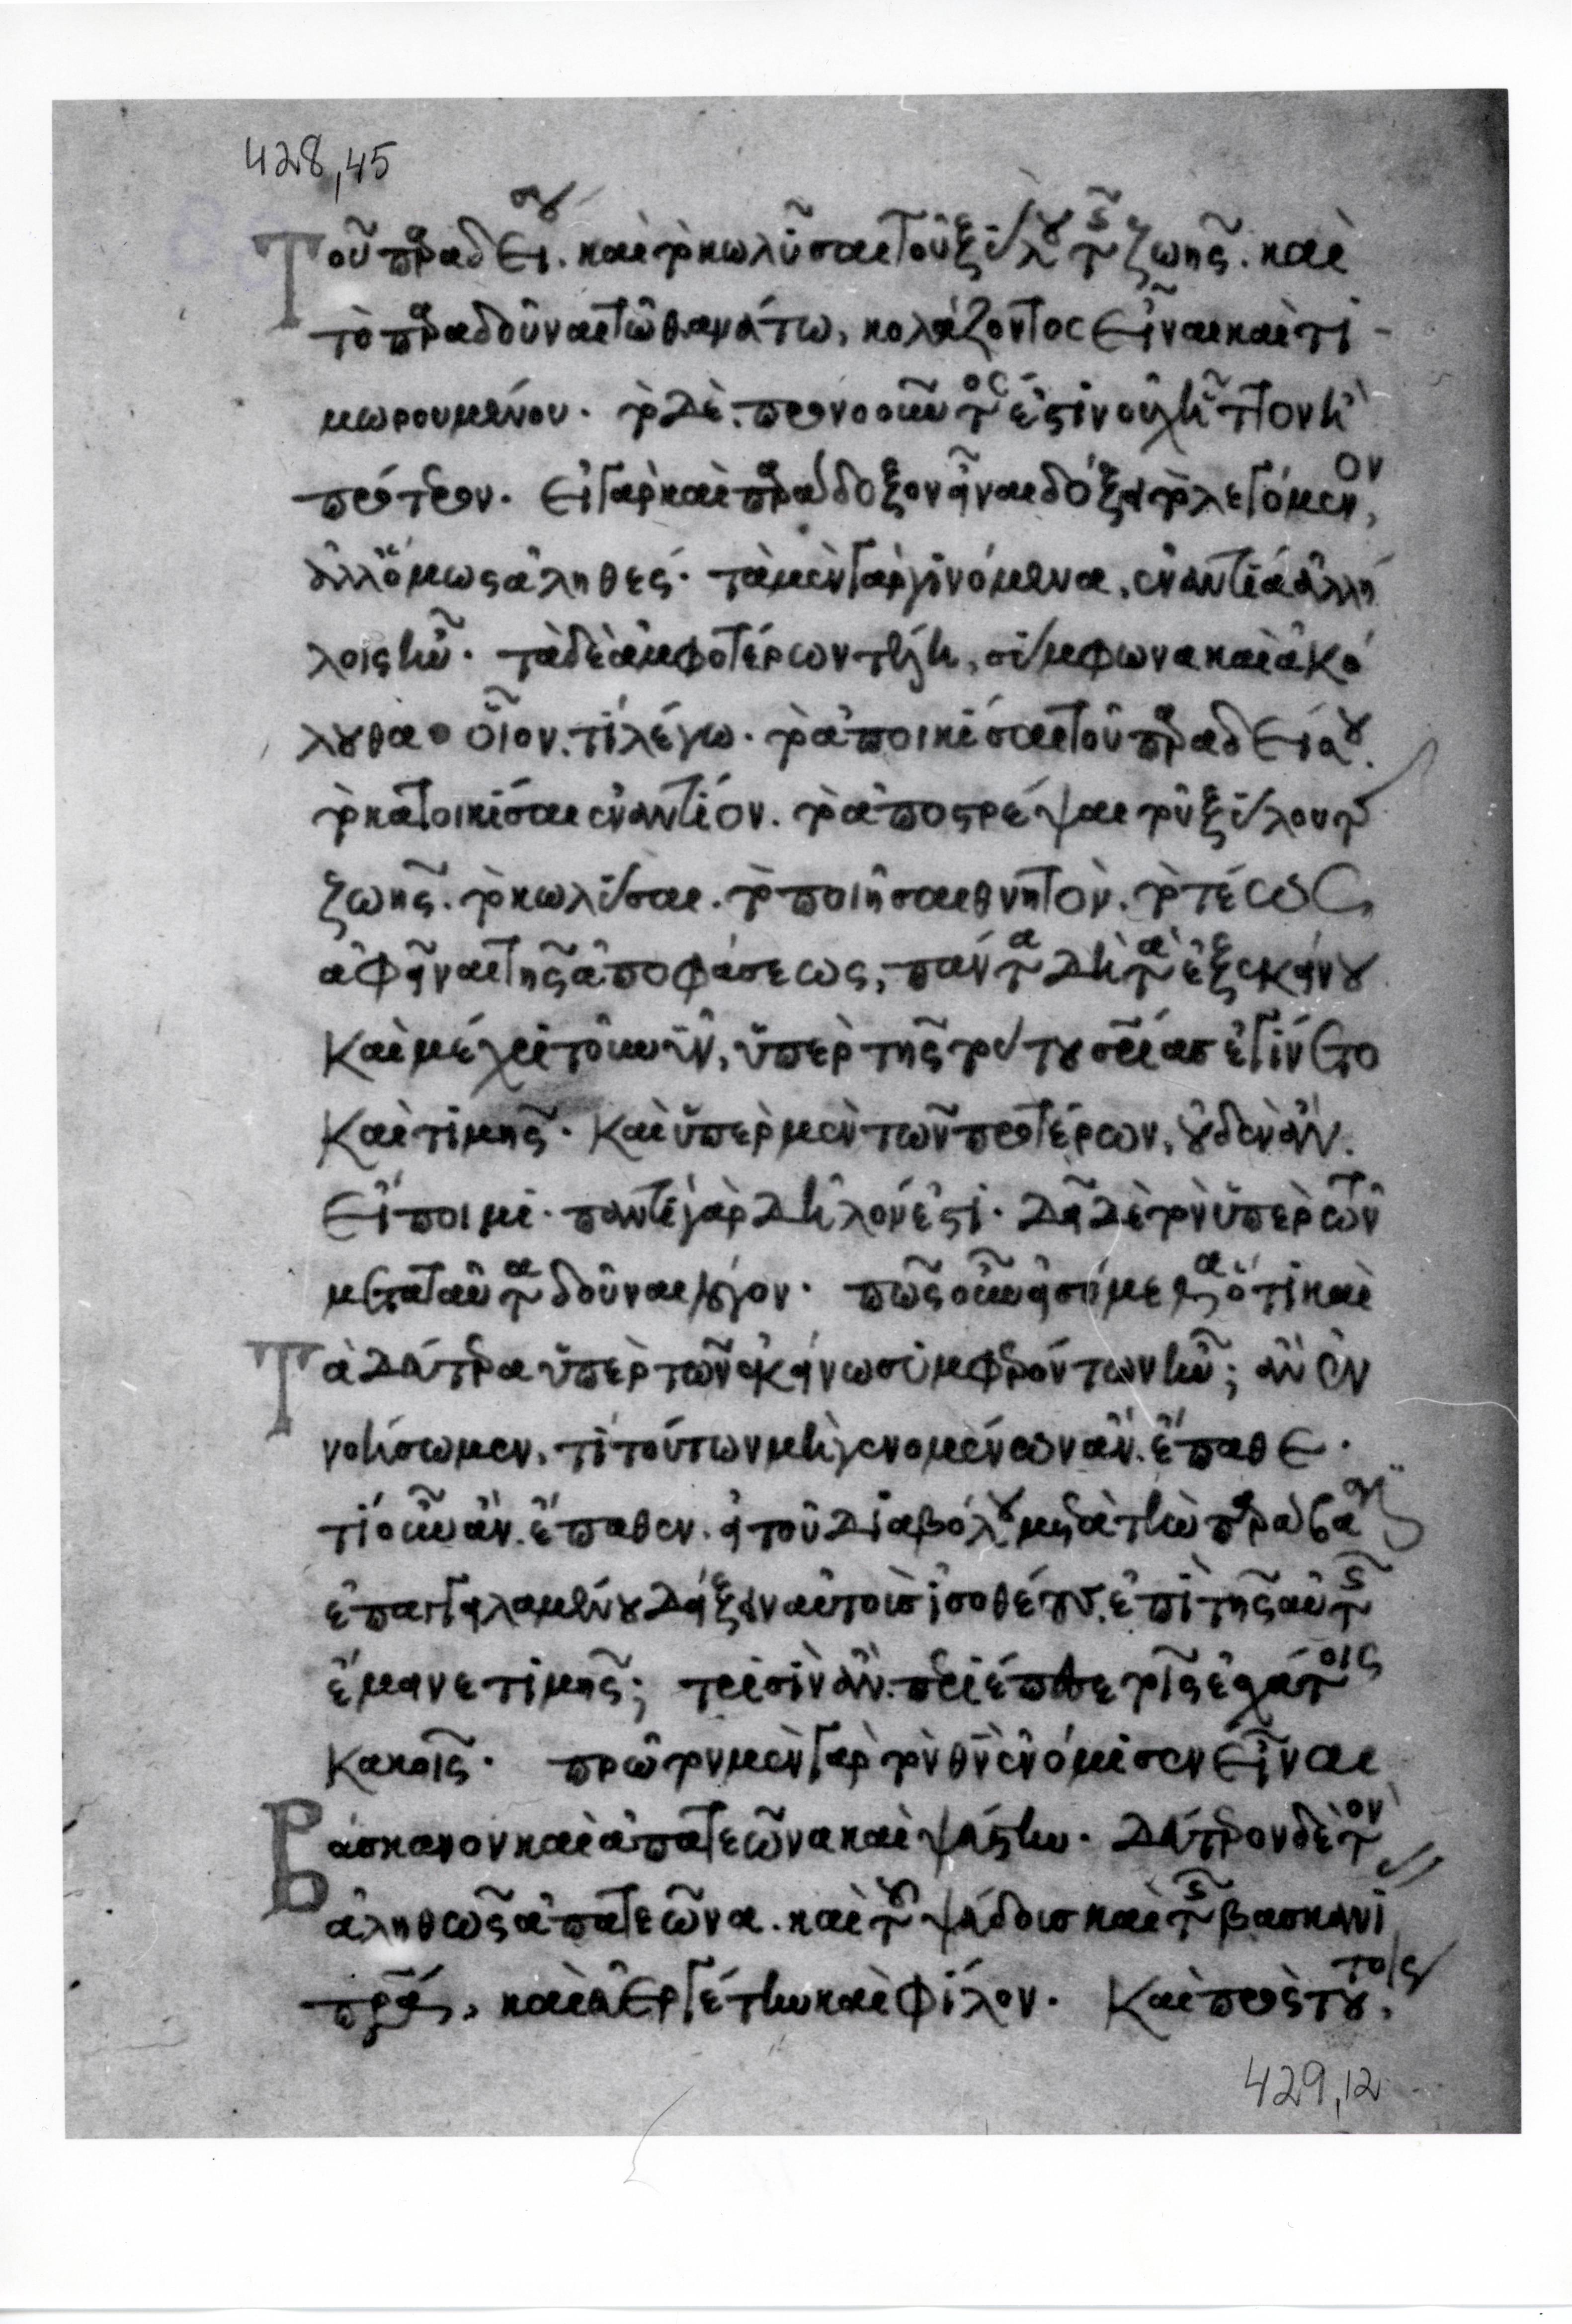 428,45
Τοῦ παραδείσου. καὶ τὸ κωλῦσαι τοῦ ξύλου τῆς ζωῆς. καὶ
τὸ παραδοῦναι τῷ θανάτω, κολάζοντος εἶναι καὶ τι-
μωρουμένου. τὸ δὲ προνοοῦντος ἐστὶν οὐχ ἧττον ἢ
πρότερον. εἰ γὰρ καὶ παράδοξον εἶναι δόξει τὸ λεγόμενον,
ἀλλ' ὅμως ἀληθές. τὰ μὲν γὰρ γινόμενα, ἐναντία ἀλλή
λοις ἦν. τὰ δὲ ἀμφοτέρων τέλη, σύμφωνα καὶ ἀκό
λουθα. οἷόν τι λέγω. τὸ ἀποικίσαι τοῦ παραδείσου.
τὸ κατοικίσαι ἐναντίον. τὸ ἀποστρέψαι τοῦ ξύλου τῆς
ζωῆς. τὸ κωλύσαι. τὸ ποιῆσαι θνητόν. τὸ τέως
ἀφεῖναι τῆς ἀποφάσεως, πάντα δὴ ταῦτα ἐξ ἐκείνου
καὶ μέχρι τοῦ νῦν, ὑπὲρ τῆς τούτου σωτηρίας ἐγίνετο
καὶ τιμῆς. καὶ ὑπὲρ μὲν τῶν προτέρων, οὐδὲν ἂν
εἴποιμι. παντὶ γὰρ δῆλόν ἐστι. δεῖ δὲ τὸν ὑπὲρ τῶν
μετὰ ταῦτα δοῦναι λόγον. πῶς οὖν εἰσόμεθα ὅτι καὶ
τὰ δεύτερα ὑπὲρ τῶν ἐκείνω συμφερόντων ἦν; ἂν ἐν
νοήσωμεν, τί τούτων μὴ γενομένων ἂν ἔπαθε.
τί οὖν ἂν ἔπαθεν. εἰ τοῦ διαβόλου μετὰ τὴν παράβασιν
ἐπαγγειλαμένου δείξειν αὐτοὺς ἰσοθέους, ἐπὶ τῆς αὐτῆς
ἔμεινε τιμῆς; τρισὶν ἂν περιέπεσε τοῖς ἐσχάτοις
κακοῖς. πρῶτον μὲν γὰρ τὸν θν ἐνόμισεν εἶναι
Βάσκανον καὶ ἀπατεῶνα καὶ ψεύστην. δεύτερον δὲ τὸν
ἀληθῶς ἀπατεῶνα. καὶ τοῦ ψεύδους καὶ τῆς βασκανί
πρα, καὶ εὐεργέτην καὶ φίλον. καὶ πρὸς τούτοις,
429,12